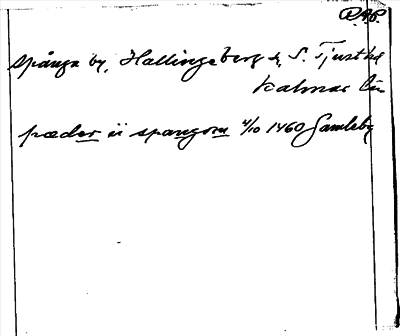 RAP.
Spånga by, Hallingeberg s, S. Tjust hd
Kalmar län
pæder ii spangom 4/10 1460 Gamleby